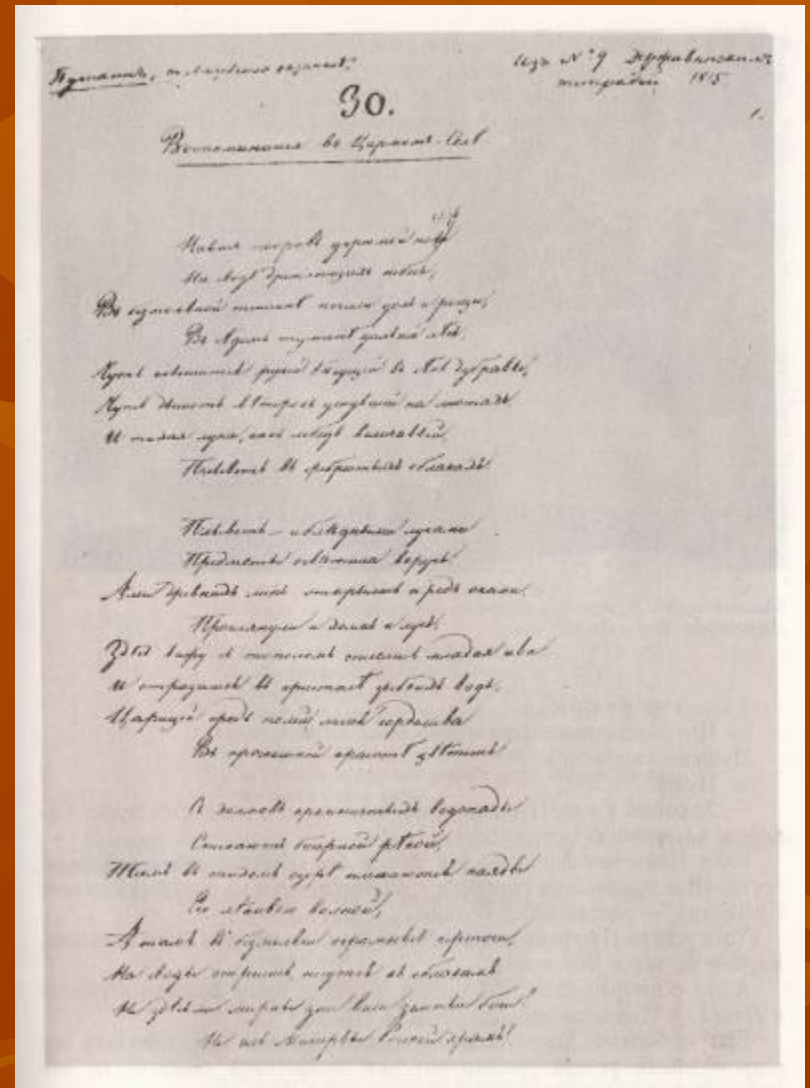 Изъ № 9 Державинскихъ
тетрадей 1815
Пушкинъ,
30.
1.
Воспоминанія въ Царскомъ-Селѣ
Нависъ покровъ угрюмой нощи
На сводѣ дремлющихъ небесъ,
Въ безмолвной тишинѣ почили долъ и рощи,
Въ сѣдомъ туманѣ дальній лѣсъ,
Чуть слышится ручей бѣгущій въ сѣнь дубравы,
Чуть дышитъ вѣтерокъ уснувшій на листахъ
И тихая луна, какъ лебедь величавый,
Плыветъ въ сребристыхъ облакахъ.
Плыветъ – и блѣдными лучами
Предметы освѣтила вдругъ
Аллеи древнихъ липъ открылись предъ очами,
Проглянули и холмъ и лугъ,
Здѣсь вижу съ тополомъ сплелась младая ива
И отразилась въ кристалѣ зыбкихъ водъ,
Царицей средь полей лилея горделива
Въ роскошной красотѣ цвѣтетъ
Съ холмовъ кремнистыхъ водопады
Стекаютъ бисерной рѣкой,
Тамъ въ тихомъ озерѣ плескаются наяды
Его лѣнивою волной,
А тамъ въ безмолвіи огромные чертоги,
На своды опершись, несутся къ облакамъ
Не здѣсь ли мирны дни вели земные боги?
Не се ль Минервы Росской храмъ?